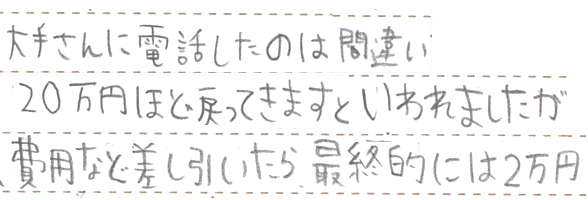 大手さんに電話したのは間違い
20万円ほど戻ってきますといわれましたが
費用など差し引いたら、最終的には2万円